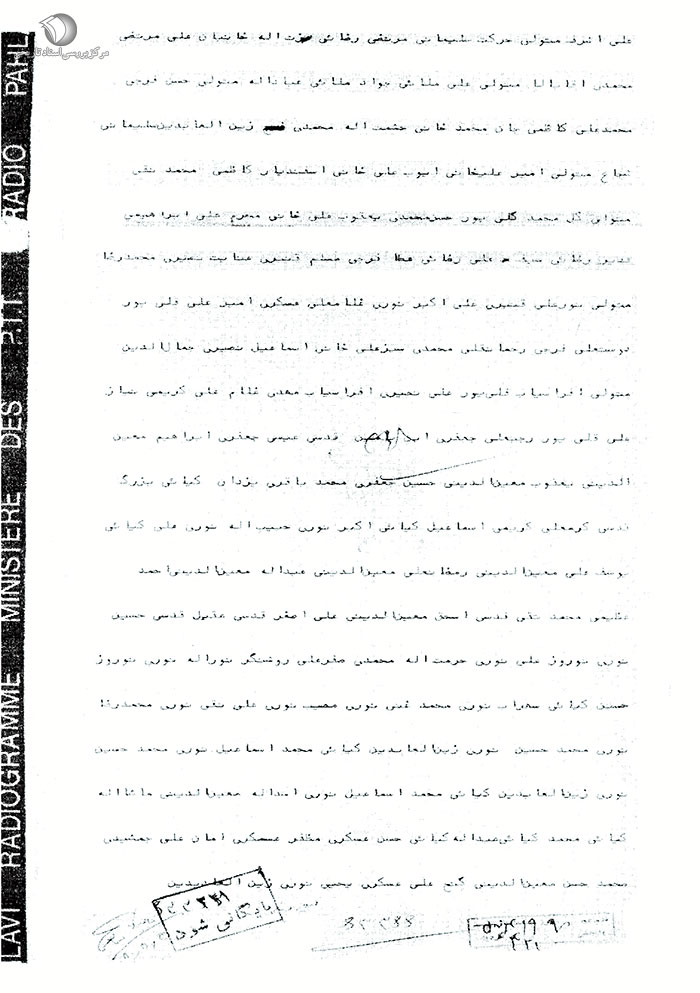 مرکز بررسی اسناد تاریخی
LAVI RADIOGRAMME MINISTERE DES P.T.T. RADIO PAHL
علی اشرف متولی حرکت سلیمانی مرتضی رضائی عزت اله خانیان علی مرتضی
محمدی اقابابا متولی علی ملائی جواد ملائی عباداله متولی حسن فرجی
محمدعلی کاظمی جان محمد خانی حشمت اله محمدی زین العابدین سلیمانی
شجاع متولی امیر علیخانی ایوب علی خانی اسفندیار کاظمی محمد تقی
متولی گل محمد گلی پور حسن محمدی یعقوب علی خانی محرم علی ابراهیمی
رضائی سیف علی رضائی عطا فرجی مسلم قنبری عنایت نصیری محمدرضا
متولی نورعلی قنبری علی اکبر نوری غلامعلی عسکری امیر علی قلی پور
دوستعلی فرجی رحمانقلی محمدی سبزعلی خانی اسماعیل نصیری جمال الدین
متولی افراسیاب قلی پور علی نصیری افراسیاب مهدی غلام علی کریمی نیاز
علی قلی پور رجبعلی جعفری قدسی عیسی جعفری ابراهیم معین
الدینی یعقوب معین الدینی حسین جعفری محمد باقری یزدان کیانی بزرگ
قدسی کرمعلی کریمی اسماعیل کیانی اکبر نوری حبیب اله نوری علی کیانی
یوسف علی معین الدینی رمضانعلی معین الدینی عبداله معین الدینی احمد
عظیمی محمد تقی قدسی اسحق معین الدینی علی اصغر قدسی عقیل قدسی حسین
نوری نوروز علی نوری حرمت اله محمدی صفرعلی روشنگر نوراله نوری نوروز
حسین کیانی سهراب نوری محمد غنی نوری مصیب نوری علی نقی نوری محمدرضا
نوری محمد حسین نوری زین العابدین کیانی محمد اسماعیل نوری محمد حسین
نوری زین العابدین کیانی محمد اسماعیل نوری اسداله معین الدینی ماشااله
کیانی محمد کیانی عبداله کیانی حسن عسکری مظفر عسکری امان علی جمشیدی
محمد حسن معین الدینی گنج علی عسکری یحیی نوری زین العابدین
بایگانی شود